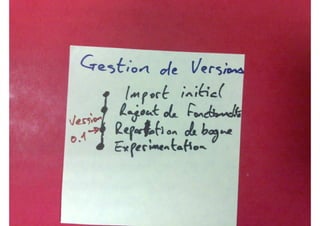 Gestion de Versions
Import initial
Rajout de Fonctionnalité
version
0.1
Reparation de bogue
Experimentation